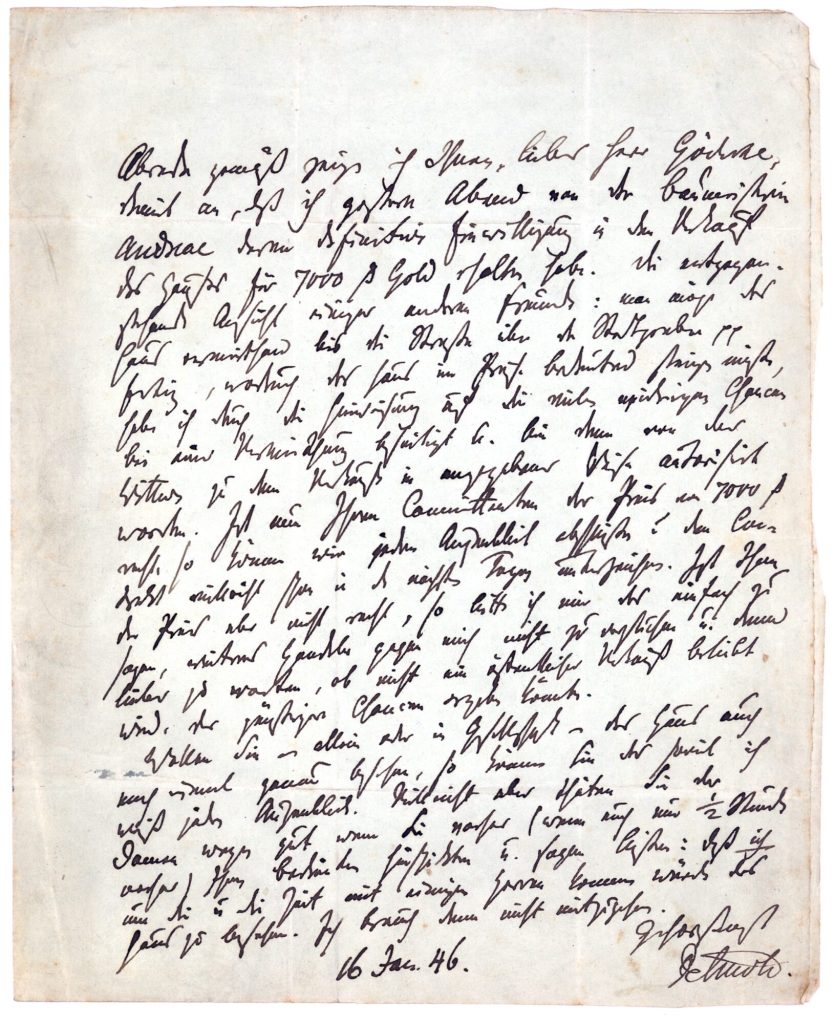 Abrede gemäß zeige ich Ihnen, lieber Herr Gödecke,
damit an, daß ich gestern Abend von der Baumeisterin
Andreae deren definitive Einwilligung in den Verkauf
des Hauses für 7000 ₰ Gold erhalten habe. Die entgegen-
stehende Ansicht einiger anderen Freunde: man möge das
Haus vermiethen bis die Straße über die Stadtgraben pp
fertig, wodurch das Haus im Preise bedeutend steigen müßte,
habe ich durch die Hinweisung auf die vielen niedrigen Chancen
bei einer Vermiethung beseitigt u. bin denn von der
Wittwe zu dem Verkaufe in angegebener Weise autorisirt
worden. Ist nun Ihrem Committenten der Preis von 7000 ₰
recht, so können wir jeden Augenblick abschließen u. den Con-
trakt vielleicht schon in den nächsten Tagen unterzeichnen. Ist Ihnen
der Preis aber nicht recht, so bitte ich mir das einfach zu
sagen, weiteres Handeln gegen mich nicht zu versuchen u. dann
lieber zu warten, ob nicht ein öffentlicher Verkauf beliebt
wird, der günstigere Chancen ergeben könnte.
Wollen Sie – allein oder in Gesellschaft – das Haus auch
noch einmal genau besehen, so können Sie das soviel ich
weiß jeden Augenblick. Vielleicht aber thäten Sie der
Damen wegen gut wenn Sie vorher (wenn auch nur ½ Stunde
vorher) Ihren Bedienten hinschickten u. sagen ließen: daß ich
um die u. die Zeit mit einigen Herren kommen würde das
Haus zu besehen. Ich brauche denn nicht mitzugehen.
Gehorsamst
Detmold.
16 Jan. 46.